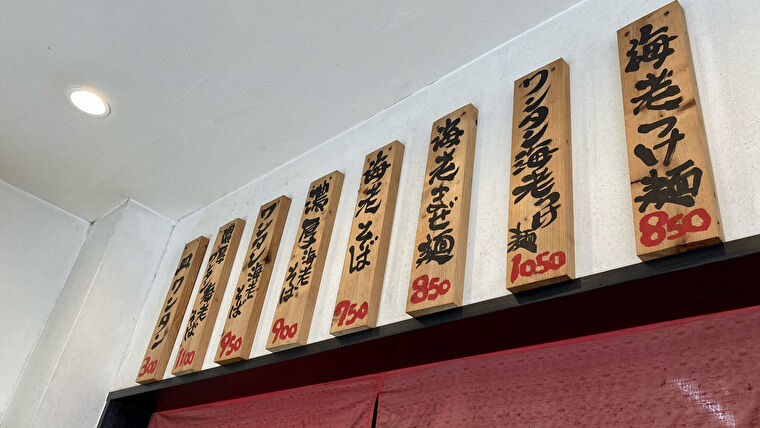 海老つけ麺
850
ワンタン海老つけ麺
1050
海老まぜ麺
850
海老そば
750
濃厚海老そば
900
ワンタン海老そば
950
濃厚ワンタン海老そば
1100
皿ワンタン
300